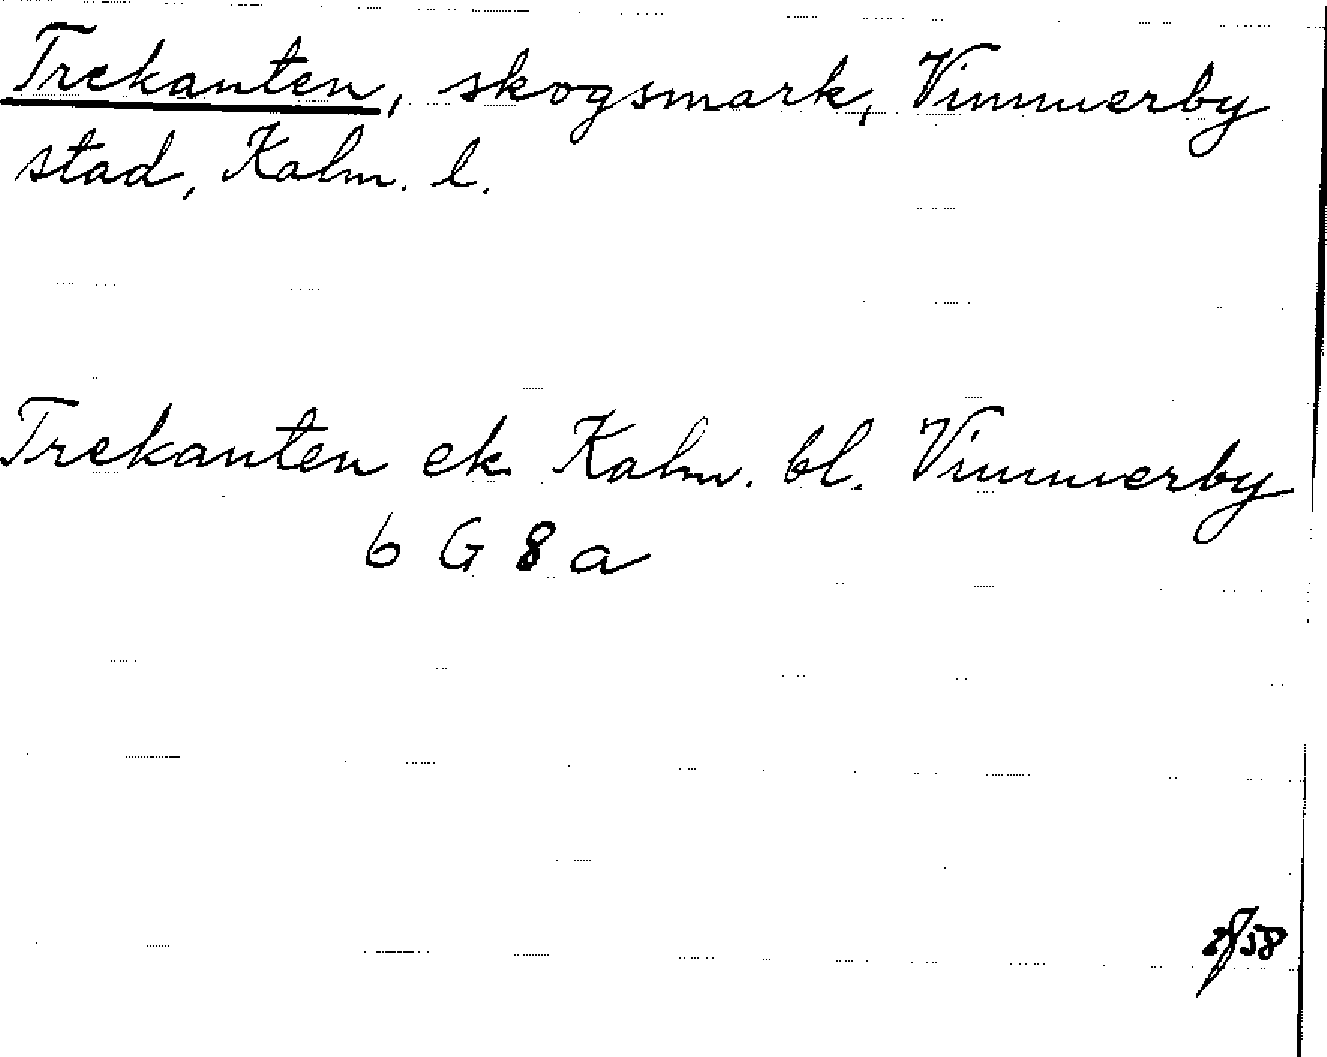 Trekanten, skogsmark, Vimmerby
stad, Kalm. l.
Trekanten ek Kalm. bl. Vimmerby
6 G 8 a